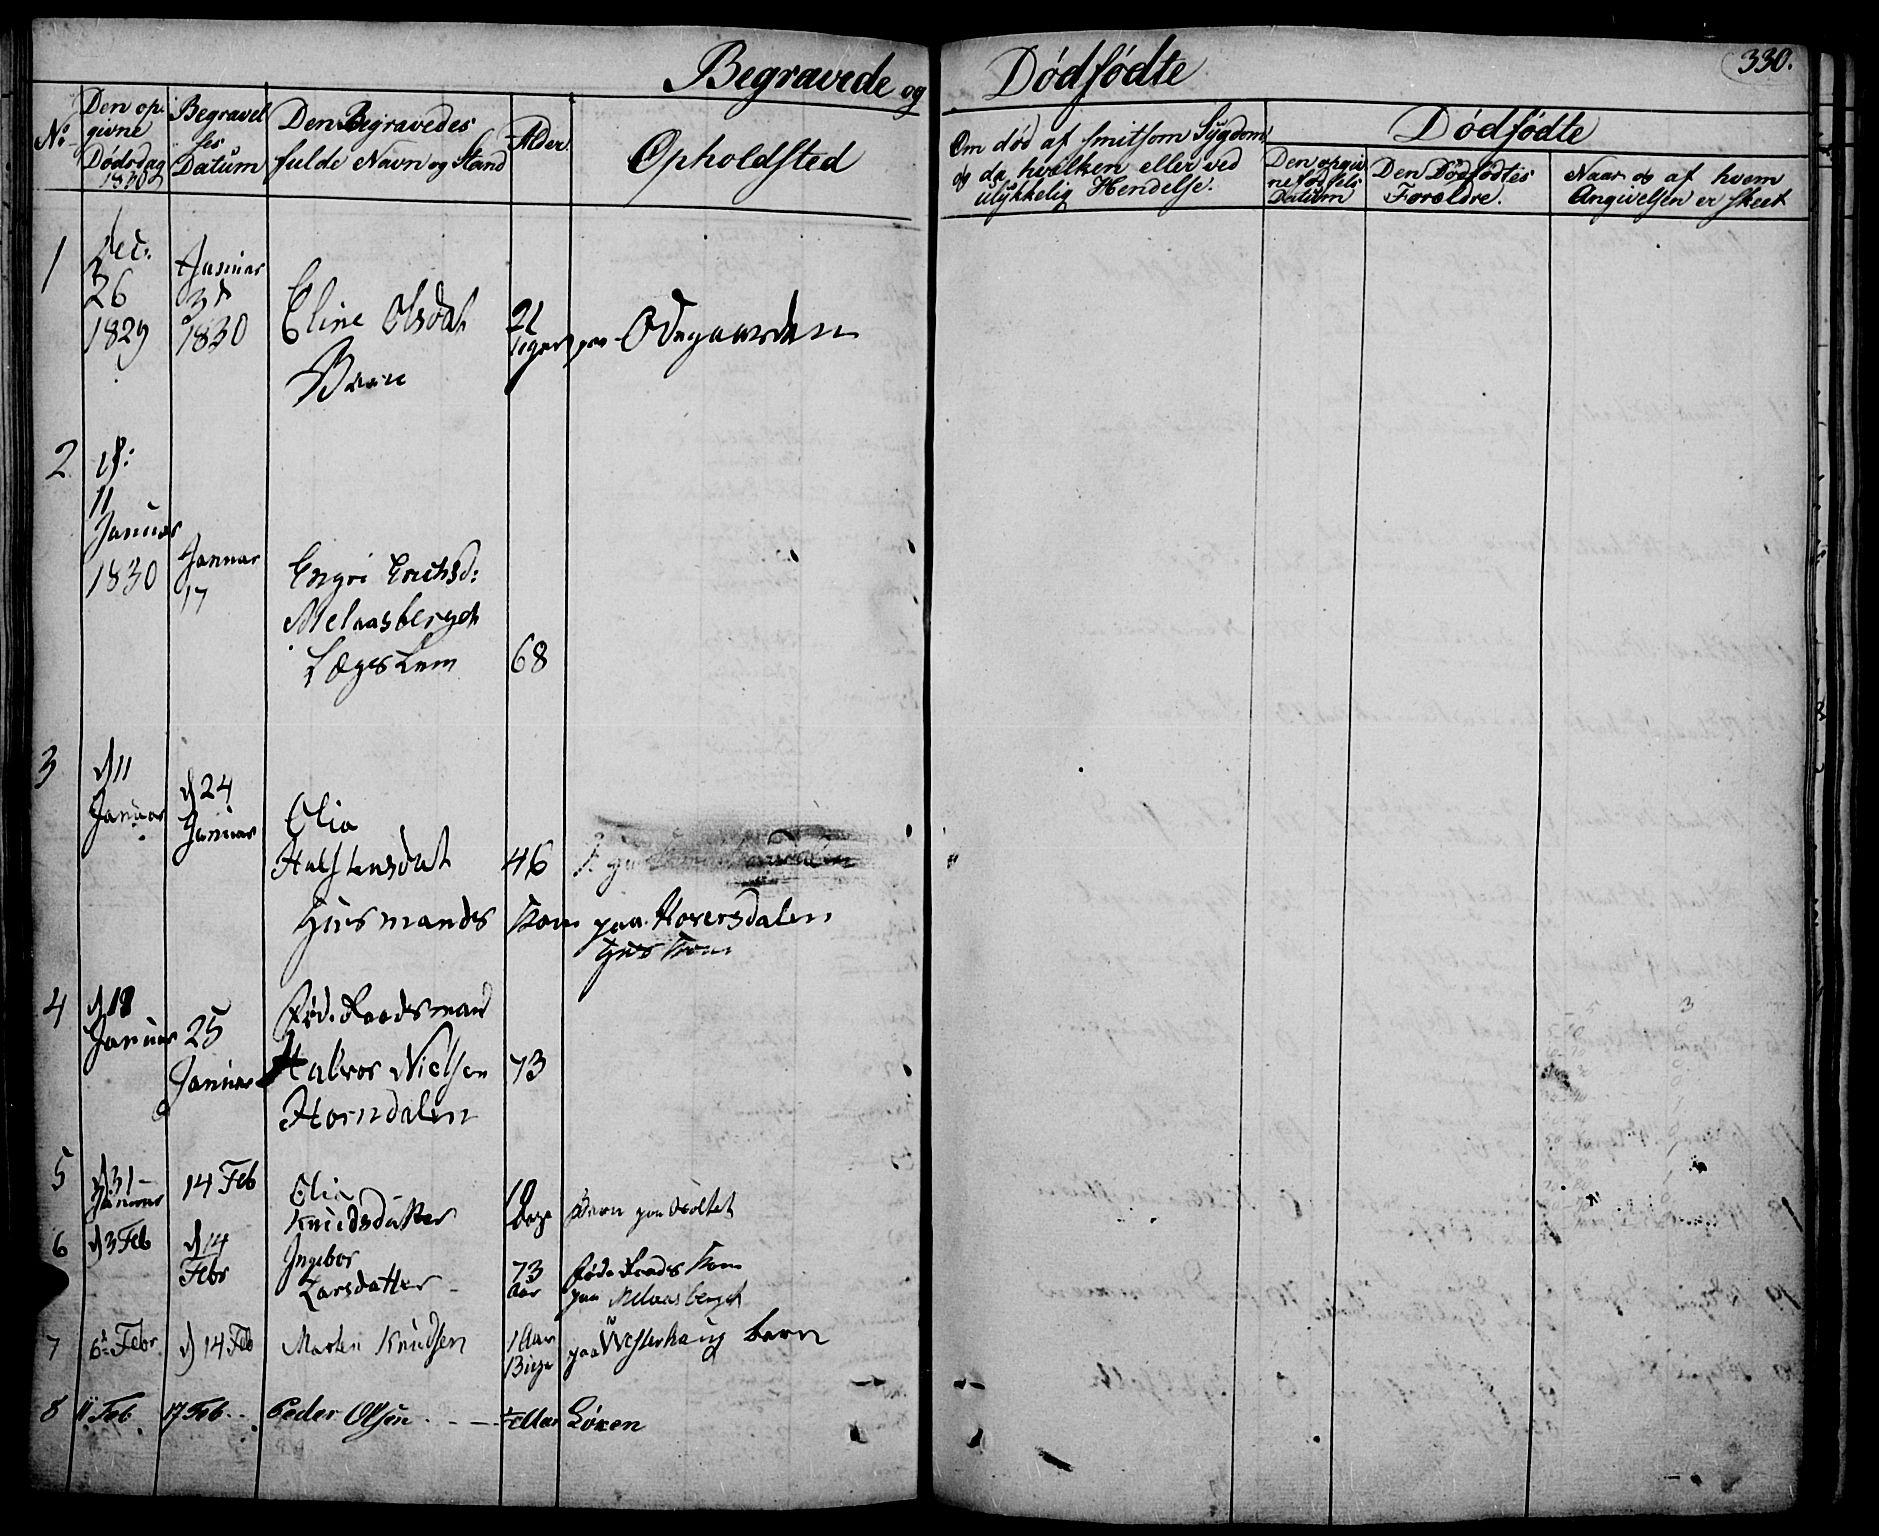 Begravede og Dödfödte
330.
No
Den op-
givne
Dödsdag
1830
Begravel
ses
Datum
Den Begravedes
fulde Navn og Stand
Alder
Opholdsted
Om död af smitsom Sygdom
og da hvilken eller ved
ulykkelig Hendelse.
Dödfödte
Den opgiv
ne fødsels
Datum
Den Dödfödtes
Forældre.
Naar og af hvem
Angivelsen er skeet
1
Dec.
26
1829
Januar
3
1830
Eline Olsdat
Barn
21
paa Ödegaarden
2
11
Januar
1830
Januar
17
Engri Erichsd:
Melaasberget
Lægs Lem
68
3
d 11
Januar
d 24
Januar
Olia
Halstensdat
46
Huusmands Kone paa Horersdalen
4
d 18
Januar
25
Januar
Föd. Raadsmand
Halvor Nielsen
Horndalen
73
5
d 31
Januar
14 Feb
Olia
Knudsdatter
10
Dage
Barn paa Holtet
6
d 3 Feb
d 14
Febr
Ingebor
Larsdatter
73
Aar
Föde Raads Kone
paa Melaasberget
7
6 Febr.
d 14 Feb
Marten Knudsen
1 Aar
13 uger
paa Westerhaug barn
8
11 Feb
17 Feb.
Peder Olsen
Aar
Lören